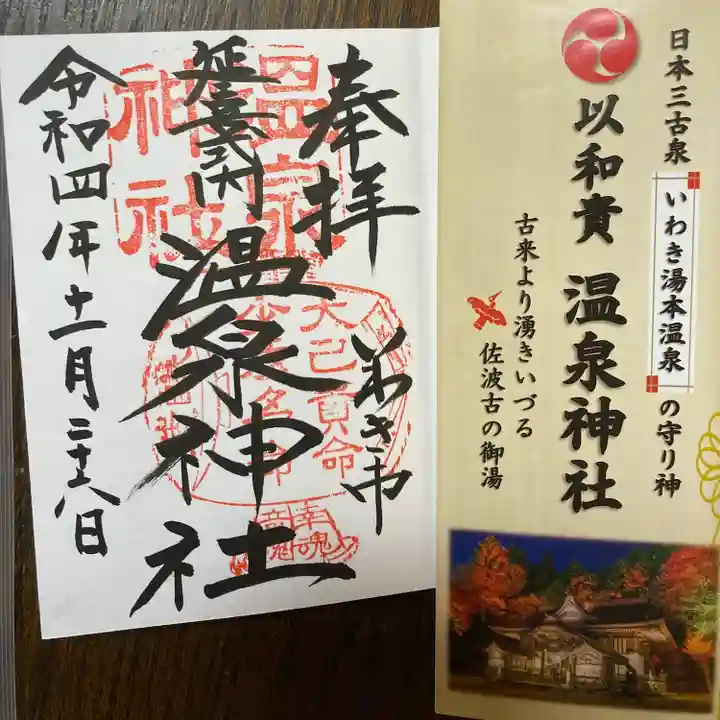 日本三古泉
いわき湯本温泉の守り神
以和貴 温泉神社
古来より湧きいづる
佐波古の御湯
奉拝
いわき市
延喜式内
温泉神社
令和四年十一月二十八日
温泉
神社
大己貴命
少彦名命
幸魂